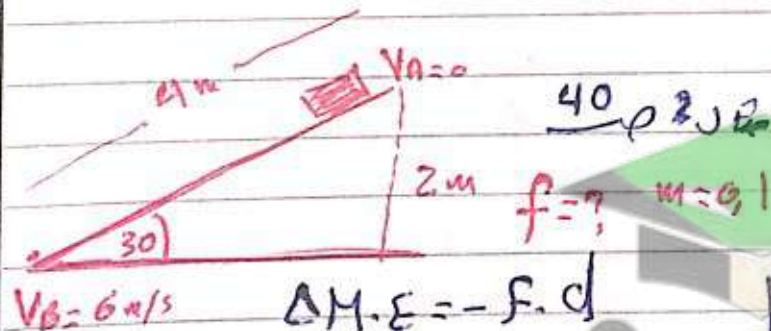 4 m
V_A = 0
40
2 m
f = ? m = 0,1
30
V_B = 6 m/s ΔM.E = -f.d